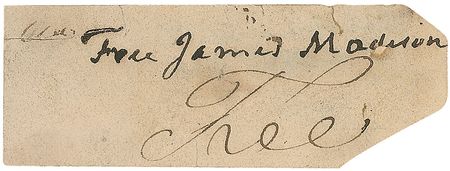 Free James Madison
Free